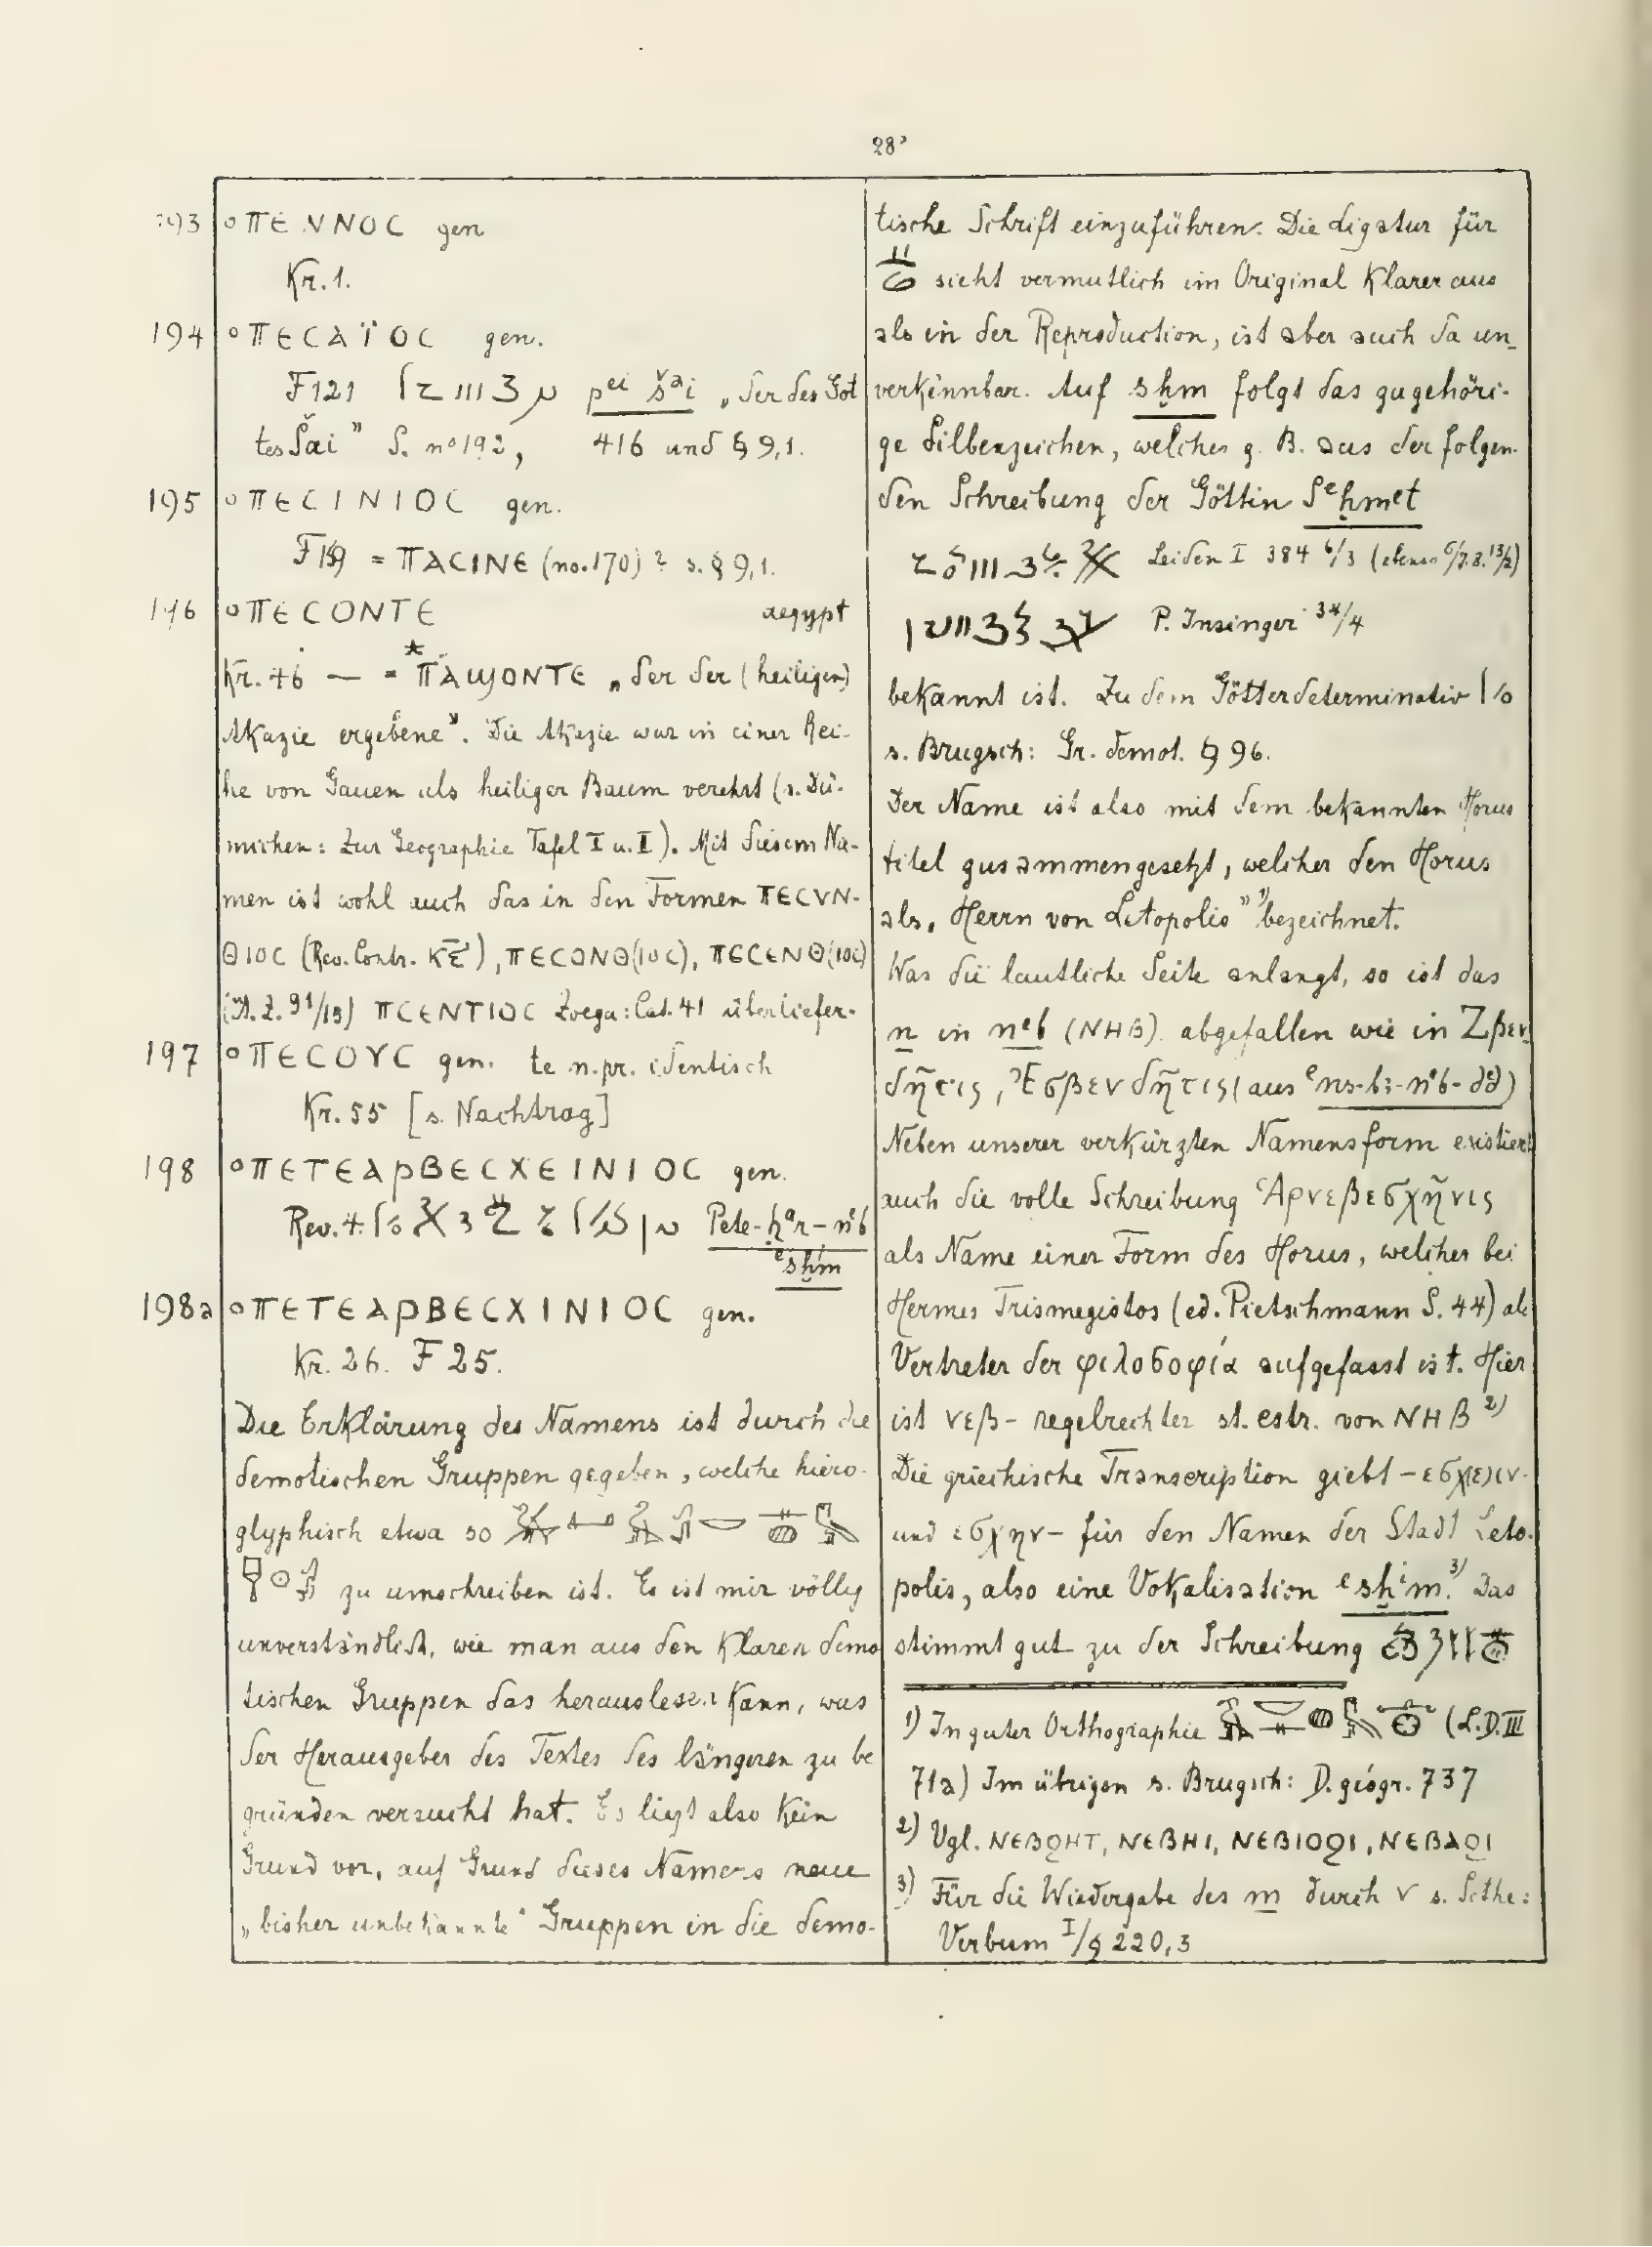 28ᵃ
193 °ΠΕΝΝΟC gen
Kr. 1.
194 °ΠΕCΑΪΟC gen.
F 121 pᵉⁱ šᵃi „der des Got
tes Šai” S. nº 192, 416 und § 9,1.
195 °ΠΕCΙΝΙΟC gen.
F 159 = ΠΑCΙΝΕ (no. 170)? s. § 9,1.
196 °ΠΕCΟΝΤΕ aegypt
Kr. 46 — = *ΠΑϢΟΝΤΕ „der der (heiligen)
Akazie ergebene”. Die Akazie war in einer Rei-
he von Gauen als heiliger Baum verehrt (s. Dü-
michen: Zur Geographie Tafel I u. II). Mit diesem Na-
men ist wohl auch das in den Formen ΠΕCΥΝ-
ΘΙΟC (Rev. Contr.), ΠΕCΟΝΘ(ΙΟC), ΠΕCΕΝΘ(ΙΟC)
(Ä.Z. 91/19) ΠCΕΝΤΙΟC Zoega: Cat. 41 überliefer-
197 °ΠΕCΟΥC gen. te n.pr. identisch
Kr. 55 [s. Nachtrag]
198 °ΠΕΤΕΑΡΒΕCΧΕΙΝΙΟC gen.
Rev. 4. Pete-ḥᵃr-nᵉb
ᵉsḫⁱm
198a °ΠΕΤΕΑΡΒΕCΧΙΝΙΟC gen.
Kr. 26. F 25.
Die Erklärung des Namens ist durch die
demotischen Gruppen gegeben, welche hiero-
glyphisch etwa so
zu umschreiben ist. Es ist mir völlig
unverständlich, wie man aus den klaren demo
tischen Gruppen das herauslesen kann, was
der Herausgeber des Textes des längeren zu be
gründen versucht hat. Es liegt also kein
Grund vor, auf Grund dieses Namens neue
„bisher unbekannte“ Gruppen in die demo-
tische Schrift einzuführen. Die Ligatur für
sieht vermutlich im Original klarer aus
als in der Reproduction, ist aber auch da un-
verkennbar. Auf sḫm folgt das zugehöri-
ge Silbenzeichen, welches z. B. aus der folgen-
den Schreibung der Göttin Sᵉḫmet
Leiden I 384 6/3 (ebenso
P. Insinger 34/4
bekannt ist. Zu dem Götterdeterminativ
s. Brugsch: Gr. demot. § 96.
Der Name ist also mit dem bekannten Horus
titel zusammengesetzt, welcher den Horus
als „Herrn von Letopolis” ¹⁾ bezeichnet.
Was die lautliche Seite anlangt, so ist das
n in nᵉb (ΝΗΒ) abgefallen wie in Ζβεν
δῆτις, Ἐσβενδῆτις (aus ᵉns-bꜣ-nᵉb-dᵉd)
Neben unserer verkürzten Namensform existiert
auch die volle Schreibung Ἁρνεβεσχῆνις
als Name einer Form des Horus, welcher bei
Hermes Trismegistos (ed. Pietschmann S. 44) als
Vertreter der φιλοσοφία aufgefasst ist. Hier
ist νεβ- regelrechter st. cstr. von ΝΗΒ ²⁾
Die griechische Transcription giebt -εσχ(ε)ιν-
und εσχην- für den Namen der Stadt Leto-
polis, also eine Vokalisation ᵉsḫⁱm.³⁾ Das
stimmt gut zu der Schreibung
1) In guter Orthographie (L.D. III
71a) Im übrigen s. Brugsch: D. géogr. 737
2) Vgl. ΝΕΒϨΗΤ, ΝΕΒΗΙ, ΝΕΒΙΟϨΙ, ΝΕΒΑϨΙ
3) Für die Wiedergabe des m durch ν s. Sethe:
Verbum I/§ 220,3